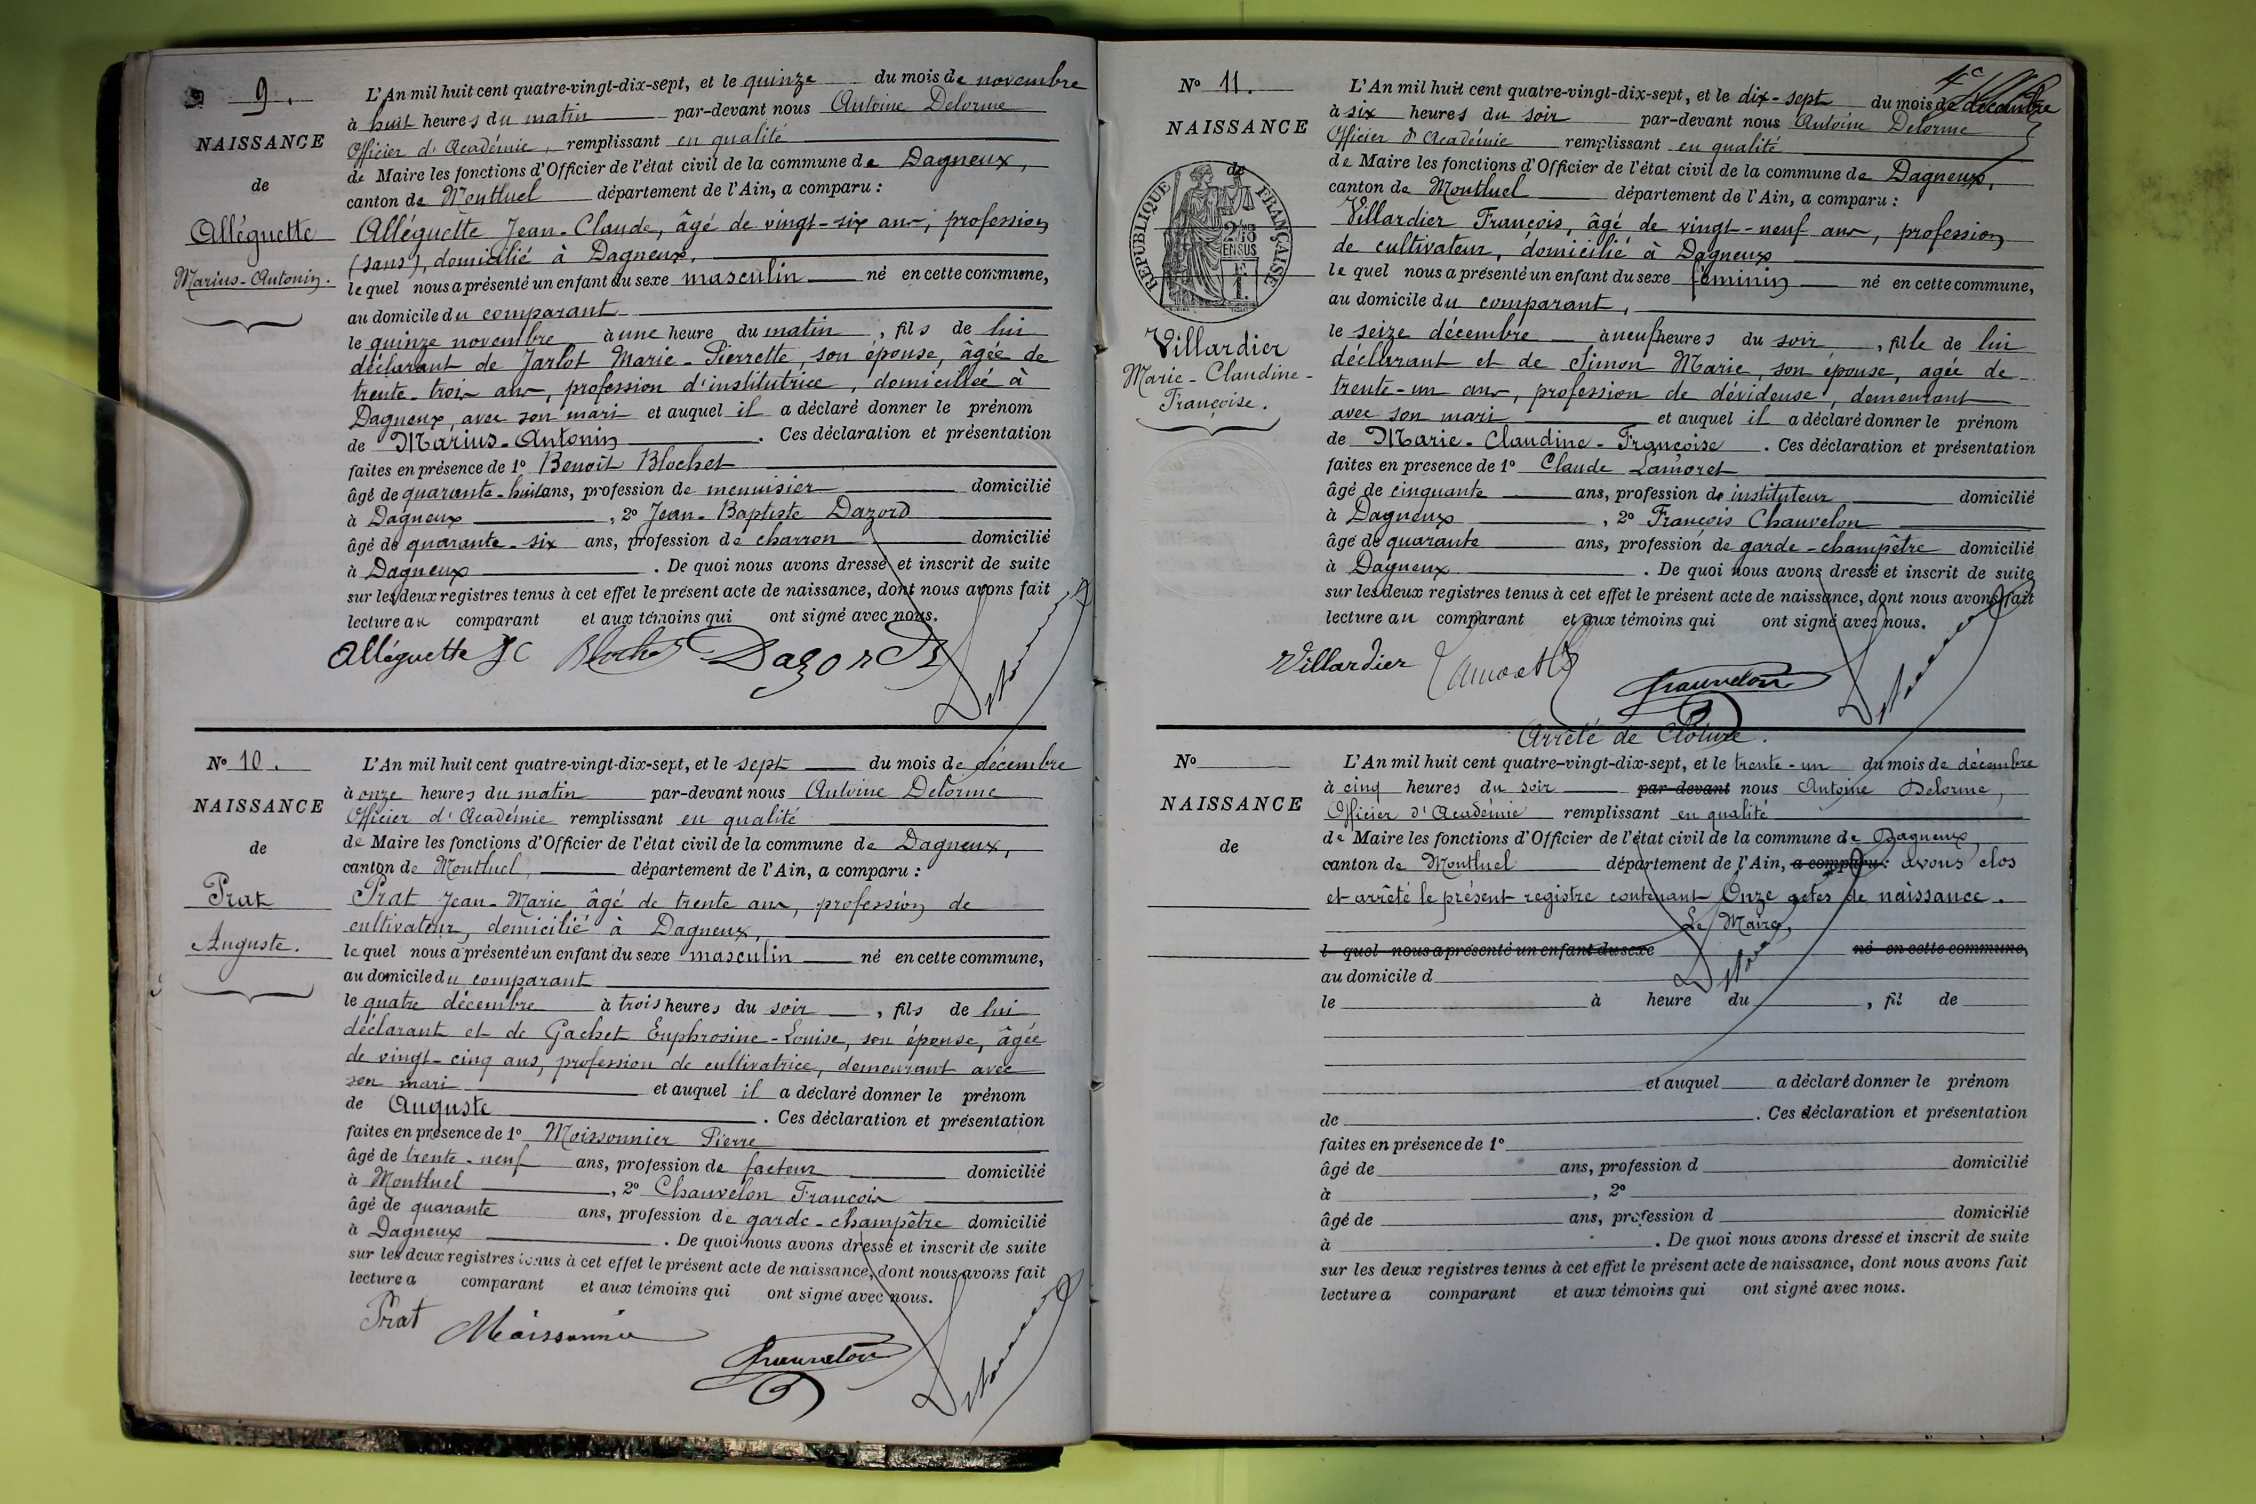 9.
NAISSANCE
de
Alléguette
Marius-Antonin.
L'An mil huit cent quatre-vingt-dix-sept, et le quinze du mois de novembre
à huit heures du matin par-devant nous Antoine Delorme
Officier d'Académie, remplissant en qualité
de Maire les fonctions d'Officier de l'état civil de la commune de Dagneux,
canton de Montluel département de l'Ain, a comparu :
Alléguette Jean-Claude, âgé de vingt-six ans, profession
(sans), domicilié à Dagneux.
lequel nous a présenté un enfant du sexe masculin né en cette commune,
au domicile du comparant
le quinze novembre à une heure du matin, fils de lui
déclarant de Jarlot Marie-Pierrette, son épouse, âgée de
trente-trois ans, profession d'institutrice, domiciliée à
Dagneux, avec son mari et auquel il a déclaré donner le prénom
de Marius-Antonin. Ces déclaration et présentation
faites en présence de 1º Benoît Blochet
âgé de quarante-huit ans, profession de menuisier domicilié
à Dagneux, 2º Jean-Baptiste Dazord
âgé de quarante-six ans, profession de charron domicilié
à Dagneux. De quoi nous avons dressé et inscrit de suite
sur les deux registres tenus à cet effet le présent acte de naissance, dont nous avons fait
lecture au comparant et aux témoins qui ont signé avec nous.
Alléguette JC Blochet Dazord Delorme
Nº 10.
NAISSANCE
de
Prat
Auguste.
L'An mil huit cent quatre-vingt-dix-sept, et le sept du mois de décembre
à onze heures du matin par-devant nous Antoine Delorme
Officier d'Académie remplissant en qualité
de Maire les fonctions d'Officier de l'état civil de la commune de Dagneux,
canton de Montluel, département de l'Ain, a comparu :
Prat Jean-Marie âgé de trente ans, profession de
cultivateur, domicilié à Dagneux,
lequel nous a présenté un enfant du sexe masculin né en cette commune,
au domicile du comparant
le quatre décembre à trois heures du soir, fils de lui
déclarant et de Gachet Euphrosine-Louise, son épouse, âgée
de vingt-cinq ans, profession de cultivatrice, demeurant avec
son mari et auquel il a déclaré donner le prénom
de Auguste. Ces déclaration et présentation
faites en présence de 1º Moissonnier Pierre
âgé de trente-neuf ans, profession de facteur domicilié
à Montluel, 2º Chauvelon François
âgé de quarante ans, profession de garde-champêtre domicilié
à Dagneux. De quoi nous avons dressé et inscrit de suite
sur les deux registres tenus à cet effet le présent acte de naissance, dont nous avons fait
lecture a comparant et aux témoins qui ont signé avec nous.
Prat Moissonnier Chauvelon Delorme
Nº 11.
NAISSANCE
de
RÉPUBLIQUE FRANÇAISE
2/10
EN SUS
Villardier
Marie-Claudine-
Françoise.
L'An mil huit cent quatre-vingt-dix-sept, et le dix-sept du mois de décembre
à six heures du soir par-devant nous Antoine Delorme
Officier d'Académie remplissant en qualité
de Maire les fonctions d'Officier de l'état civil de la commune de Dagneux,
canton de Montluel département de l'Ain, a comparu :
Villardier François, âgé de vingt-neuf ans, profession
de cultivateur, domicilié à Dagneux
lequel nous a présenté un enfant du sexe féminin né en cette commune,
au domicile du comparant,
le seize décembre à neuf heures du soir, fille de lui
déclarant et de Simon Marie, son épouse, agée de
trente-un ans, profession de dévideuse, demeurant
avec son mari et auquel il a déclaré donner le prénom
de Marie-Claudine-Françoise. Ces déclaration et présentation
faites en présence de 1º Claude Lamoret
âgé de cinquante ans, profession de instituteur domicilié
à Dagneux, 2º François Chauvelon
âgé de quarante ans, profession de garde-champêtre domicilié
à Dagneux. De quoi nous avons dressé et inscrit de suite
sur les deux registres tenus à cet effet le présent acte de naissance, dont nous avons fait
lecture au comparant et aux témoins qui ont signé avec nous.
Villardier Lamoret Chauvelon Delorme
Arrêté de Clôture.
Nº
NAISSANCE
de
L'An mil huit cent quatre-vingt-dix-sept, et le trente-un du mois de décembre
à cinq heures du soir par-devant nous Antoine Delorme,
Officier d'Académie remplissant en qualité
de Maire les fonctions d'Officier de l'état civil de la commune de Dagneux,
canton de Montluel département de l'Ain, a comparu : avons clos
et arrêté le présent registre contenant Onze actes de naissance.
Le Maire,
l quel nous a présenté un enfant du sexe né en cette commune,
Delorme
au domicile d
le à heure du , fil de
et auquel a déclaré donner le prénom
de . Ces déclaration et présentation
faites en présence de 1º
âgé de ans, profession d domicilié
à , 2º
âgé de ans, profession d domicilié
à . De quoi nous avons dressé et inscrit de suite
sur les deux registres tenus à cet effet le présent acte de naissance, dont nous avons fait
lecture a comparant et aux témoins qui ont signé avec nous.